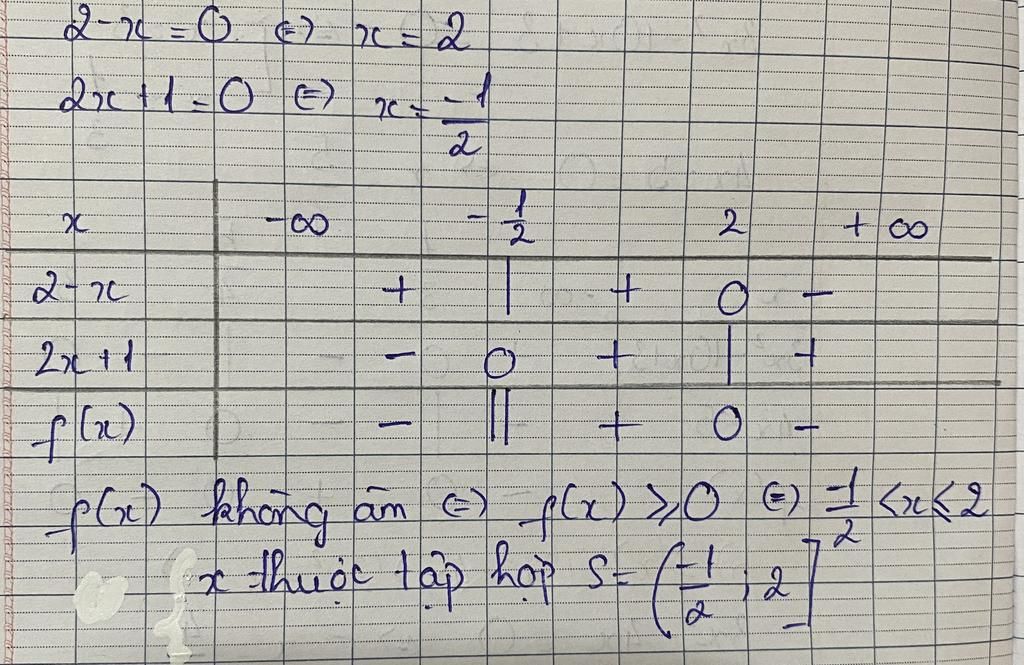 2-x = 0 ⇔ x = 2
2x+1 = 0 ⇔ x = -1/2
x -∞ -1/2 2 +∞
2-x + | + 0 -
2x+1 - 0 + | +
f(x) - || + 0 -
f(x) không âm ⇔ f(x) ⩾ 0 ⇔ -1/2 < x ⩽ 2
x thuộc tập hợp S = (-1/2 ; 2]